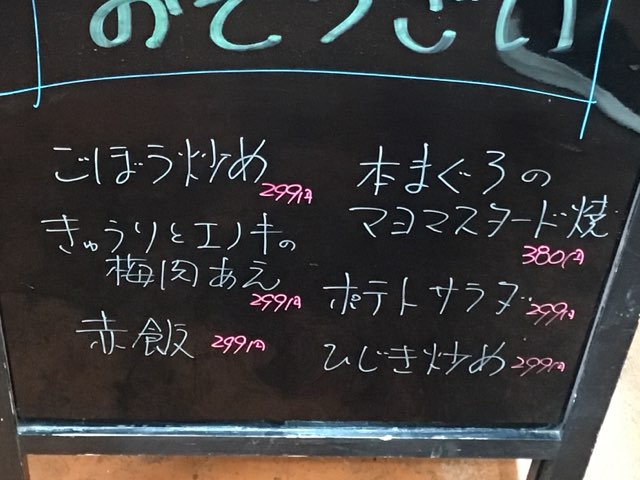 おそうざい
ごぼう炒め
299円
きゅうりとエノキの
梅肉あえ
299円
赤飯 299円
本まぐろの
マヨマスタード焼
380円
ポテトサラダ 299円
ひじき炒め 299円